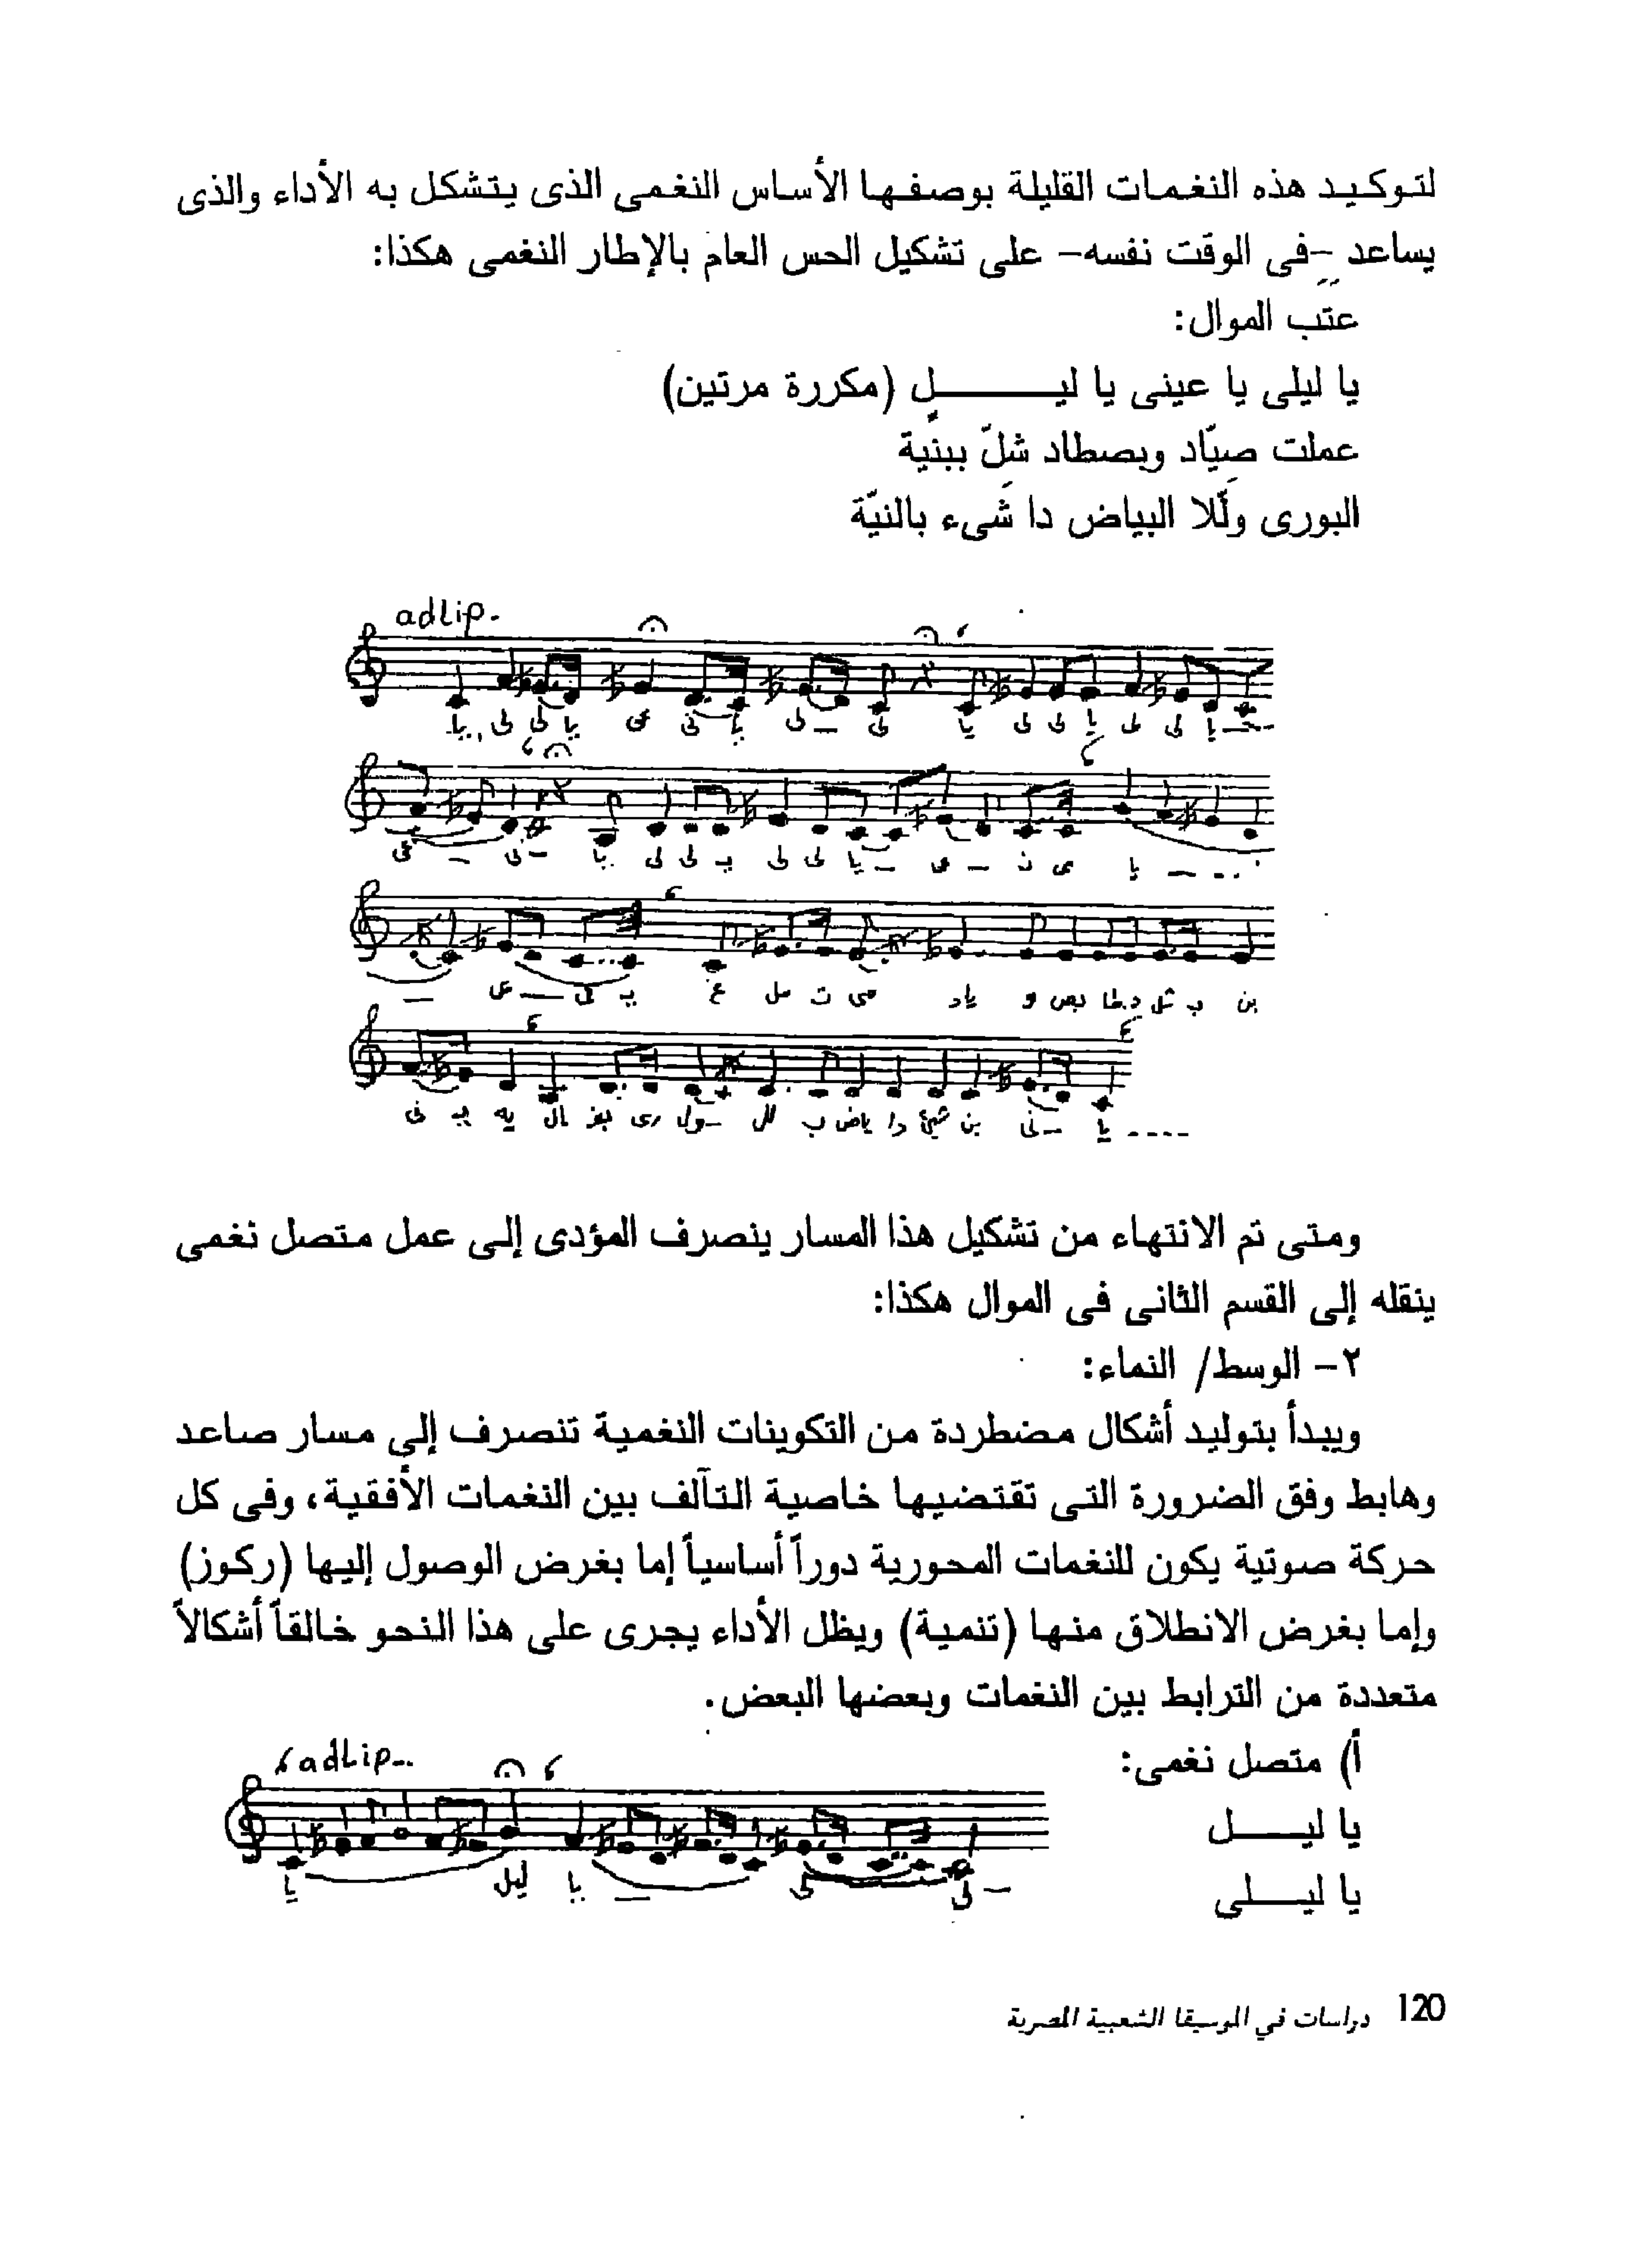 لتوكيد هذه النغمات القليلة بوصفها الأساس النغمى الذى يتشكل به الأداء والذى
يساعد -فى الوقت نفسه- على تشكيل الحس العام بالإطار النغمى هكذا:
عتب الموال:
يا ليلى يا عينى يا ليـــــــل (مكررة مرتين)
عملت صيّاد وبصطاد شلّ ببنية
البورى ولّلا البياض دا شَىء بالنيّة
adlip.
ومتى تم الانتهاء من تشكيل هذا المسار ينصرف المؤدى إلى عمل متصل نغمى
ينقله إلى القسم الثانى فى الموال هكذا:
٢- الوسط/ النماء:
ويبدأ بتوليد أشكال مضطردة من التكوينات النغمية تنصرف إلى مسار صاعد
وهابط وفق الضرورة التى تقتضيها خاصية التآلف بين النغمات الأفقية، وفى كل
حركة صوتية يكون للنغمات المحورية دوراً أساسياً إما بغرض الوصول إليها (ركوز)
وإما بغرض الانطلاق منها (تنمية) ويظل الأداء يجرى على هذا النحو خالقاً أشكالاً
متعددة من الترابط بين النغمات وبعضها البعض.
أ) متصل نغمى:
adlip..
يا ليـــــل
يا ليــــلى
يا ليل يا — لى — لى
120 دراسات في الموسيقا الشعبية المصرية